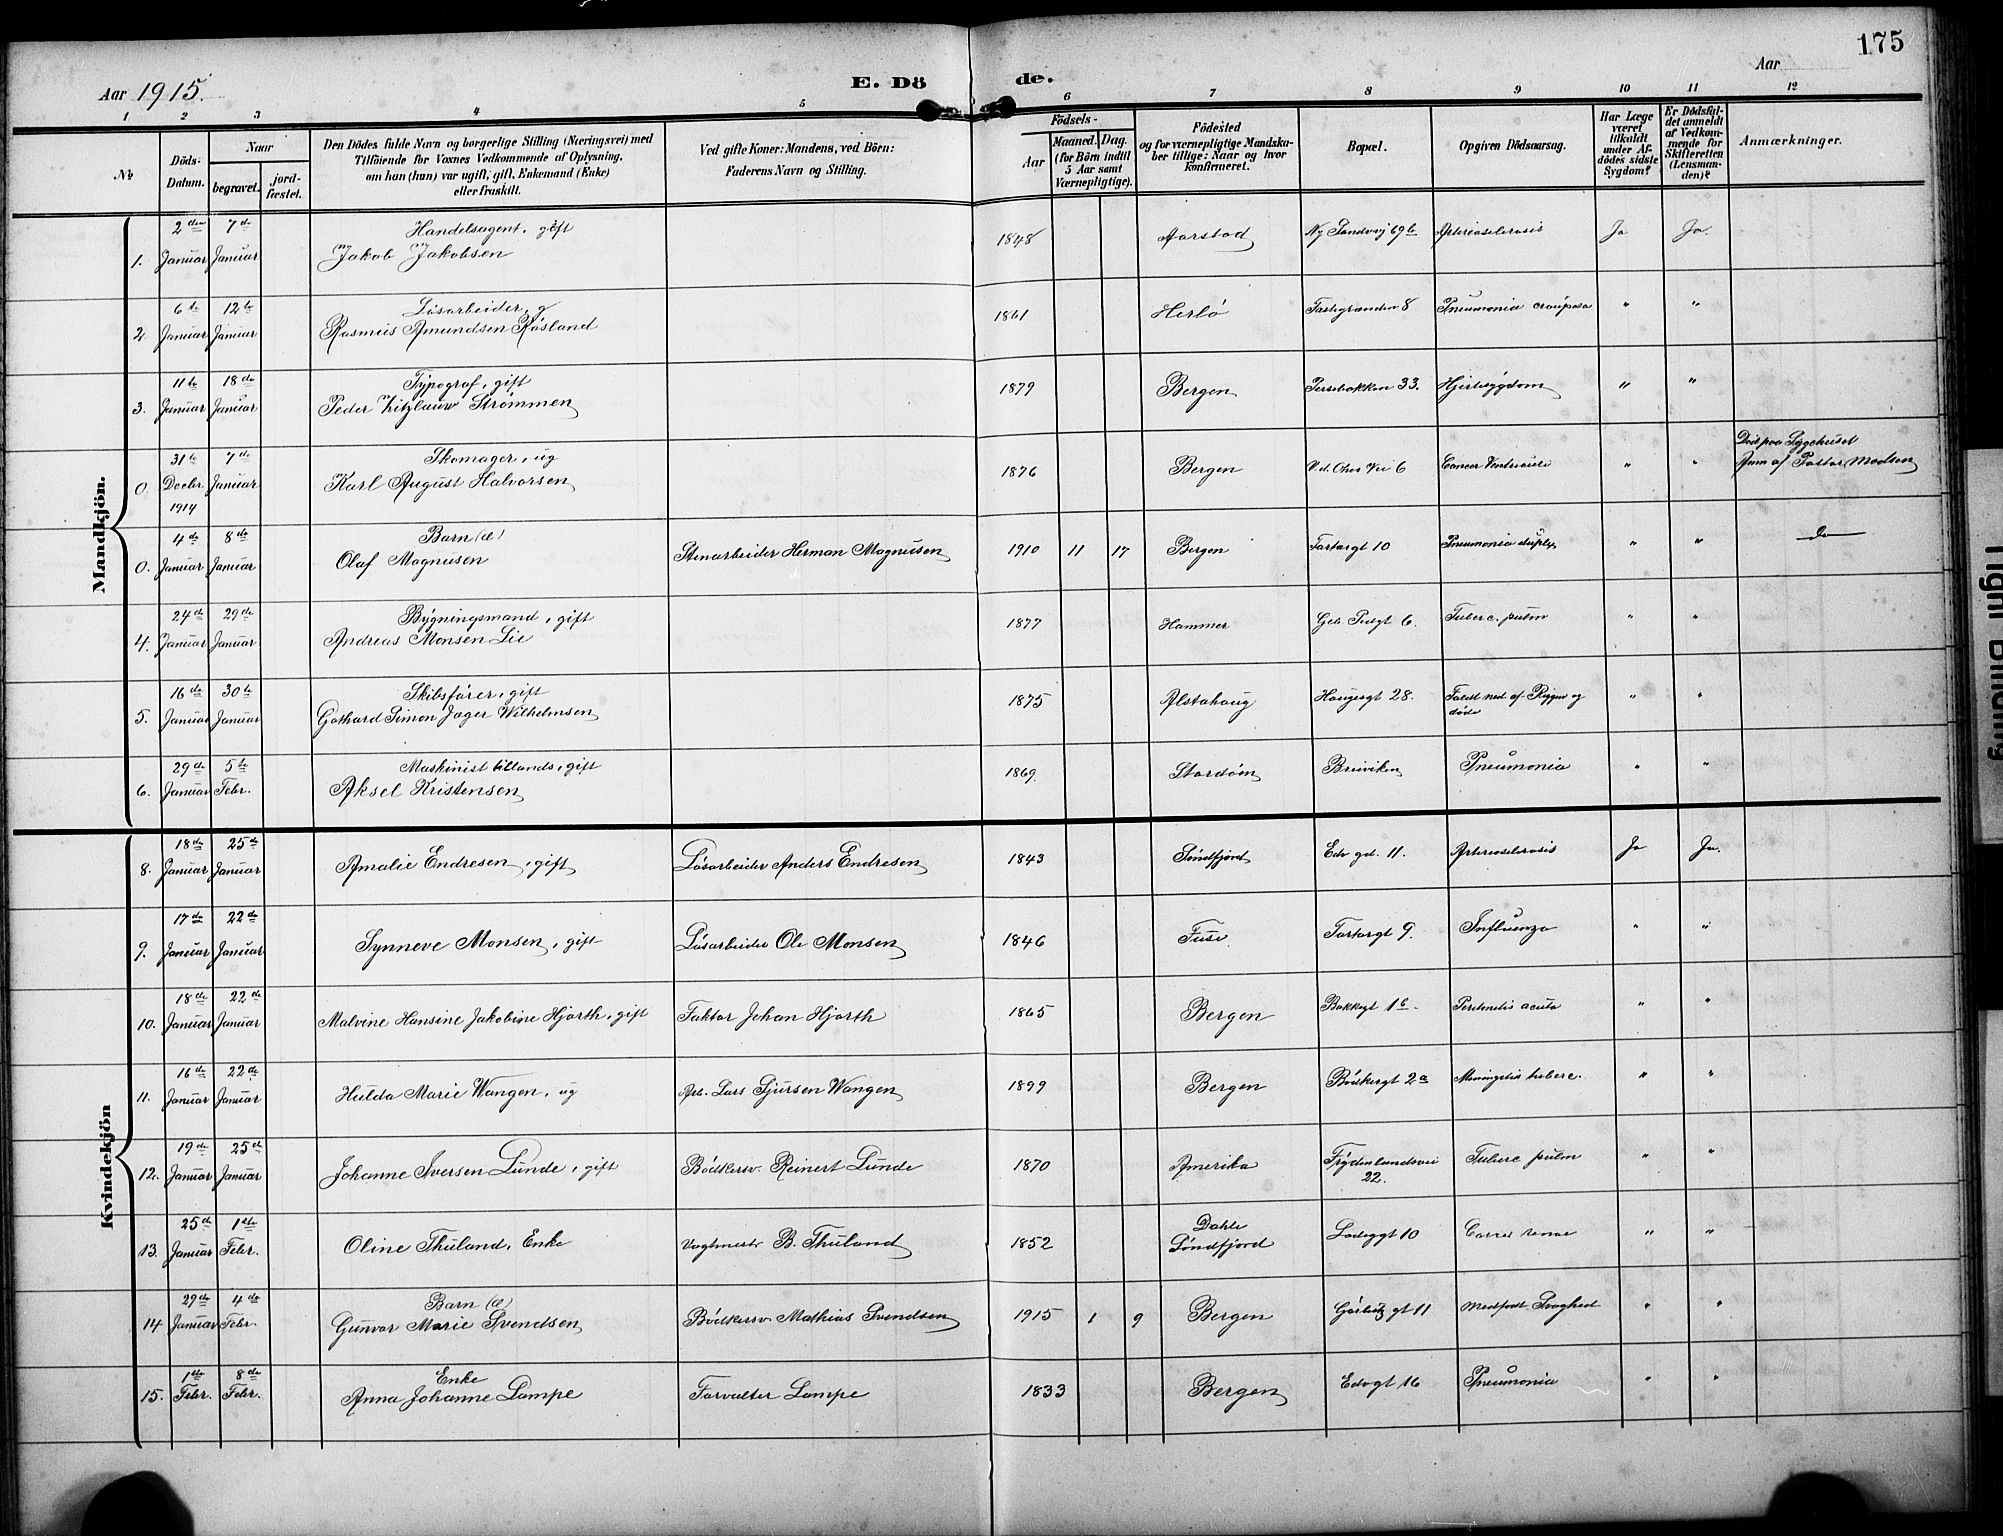 175
Aar 1915.
E. Dö de.
Aar
1 2 3 4 5 6 7 8 9 10 11 12
No
Döds-Datum.
Naar
begravet.
jord-fæstet.
Den Dödes fulde Navn og borgerlige Stilling (Næringsvei) med
Tilföiende for Voxnes Vedkommende af Oplysning,
om han (hun) var ugift, gift, Enkemand (Enke)
eller fraskilt.
Ved gifte Koner: Mandens, ved Börn:
Faderens Navn og Stilling.
Födsels-
Aar
Maaned. Dag.
(for Börn indtil
5 Aar samt
Værnepligtige).
Födested
og for værnepligtige Mandska-
ber tillige: Naar og hvor
konfirmeret.
Bopæl.
Opgiven Dödsaarsag.
Har Læge
været
tilkaldt
under Af-
dödes sidste
Sygdom?
Er Dödsfal-
det anmeldt
af Vedkom-
mende for
Skifteretten
(Lensman-
den)?
Anmærkninger.
Mandkjön.
1. 2den Januar 7de Januar Handelsagent, gift
Jakob Jakobsen 1848 Aarstad Ny Sandvej 69b Arteriosclerosis Ja Ja.
2. 6te Januar 12te Januar Løsarbeider, g
Rasmus Amundsen Røsland 1861 Herlö 8 Pneumonia crouposa " "
3. 11te Januar 18de Januar Typograf, gift
Peder Strømmen 1879 Bergen Persebakken 33. Hjertesygdom " "
0. 31te Decbr 1914 7de Januar Skomager, ug
Karl August Halvorsen 1876 Bergen 6 Cancer Ventriculi " " Död paa Sygehuset
Anm af Pastor Madsen
0. 4de Januar 8de Januar Barn (æ)
Olaf Magnusen Stenarbeider Herman Magnusen 1910 11 17 Bergen Tartargt 10 Pneumonia duplex " " Do
4. 24de Januar 29de Januar Bygningsmand, gift
Andreas Monsen Lie 1877 Hammer 6. Tuberc. pulm " "
5. 16de Januar 30te Januar Skibsfører, gift
Gothard Simon Jager Wilhelmsen 1875 Alstahaug Haugesgt 28. Faldt ned af Riggen og
døde " "
6. 29de Januar 5te Febr. Maskinist tillands, gift
Aksel Kristensen 1869. Stordöen Breiviken Pneumonia " "
Kvindekjön
8. 18de Januar 25de Januar Amalie Endresen, gift Løsarbeider Anders Endresen 1843 Söndfjord 11. Arteriosclerosis Ja Ja.
9. 17de Januar 22de Januar Synneve Monsen, gift Løsarbeider Ole Monsen 1846 Fuse. Tartargt 9. Influenza " "
10. 18de Januar 22de Januar Malvine Hansine Jakobine Hjorth, gift Faktor Johan Hjorth 1865 Bergen Bakkegt 1b Peritonitis acuta " "
11. 16de Januar 22de Januar Hulda Marie Wangen, ug Arb. Lars Sjursen Wangen 1899 Bergen Bödkergt 2a Meningitis tuberc. " "
12. 19de Januar 25de Januar Johanne Iversen Lunde, gift Bödkersv. Reinert Lunde 1870 Amerika Frydenlundsvei
22. Tuberc pulm " "
13. 25de Januar 1ste Febr. Oline Thuland, Enke Vagtmestr B. Thuland 1852 Dahle
Söndfjord Ladeggt 10 " "
14 29de Januar 4de Febr. Barn (æ)
Gunvor Marie Svendsen Bödkersv Mathias Svendsen 1915 1 9 Bergen 11 Medfødt Svaghed " "
15. 1ste Febr. 8de Febr. Enke
Anna Johanne Lampe Forvalter Lampe 1833 Bergen 16 Pneumonia " "
Tight Binding